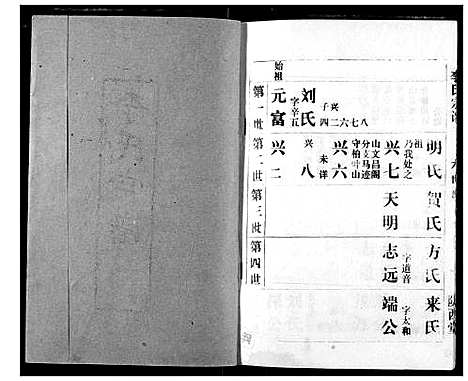 李氏宗谱
陇西堂
始祖
第一世
第二世
第三世
第四世
元富
字辛五
刘氏
子
兴
四二六七八
兴二
兴八
兴六
未详
守柏叶山
分支马迹
山文昌阁
兴七
乃我处之
祖
明氏
天明
贺氏
志远
字道音
方氏
端公
字太和
来氏